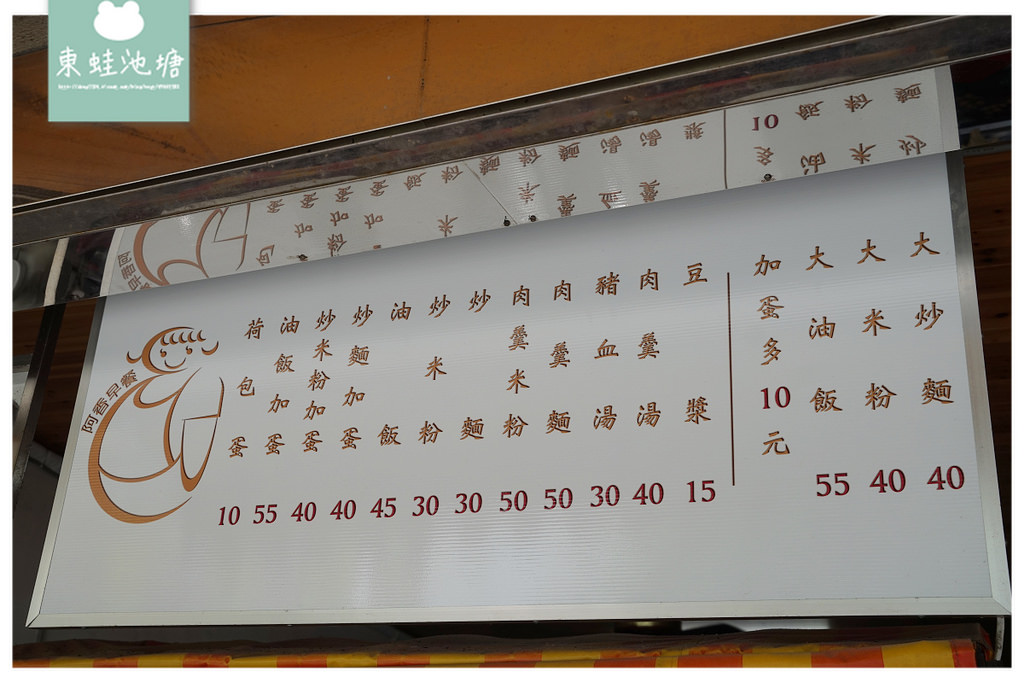 東蛙池塘
大炒麵 40
大米粉 40
大油飯 55
加蛋多10元
豆漿 15
肉羹湯 40
豬血湯 30
肉羹麵 50
肉羹米粉 50
炒麵 30
炒米粉 30
油飯 45
炒麵加蛋 40
炒米粉加蛋 40
油飯加蛋 55
荷包蛋 10
阿香早餐